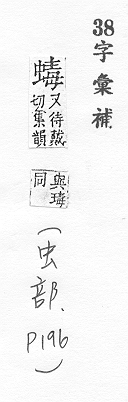 38字彙補
蝳又待戴
切集韻
與瑇
同
(虫部、P196)